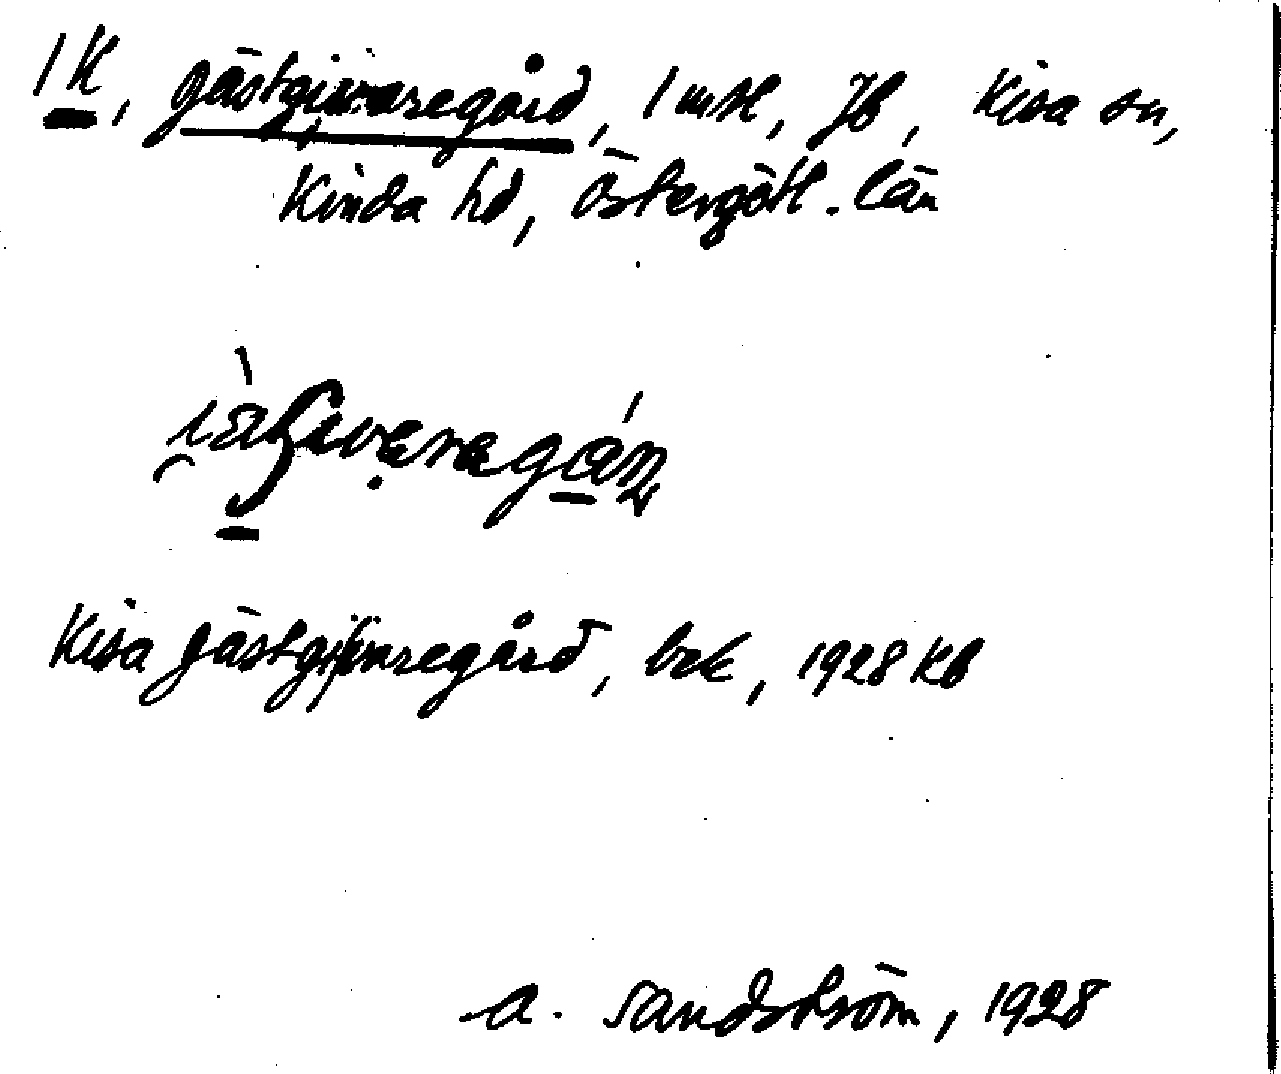 1 K, gästgivaregård, 1 mtl, Jb, Kisa sn,
Kinda hd, Östergötl. län
Kisa gästgivaregård, bek, 1928 Kb
A. Sandström, 1928